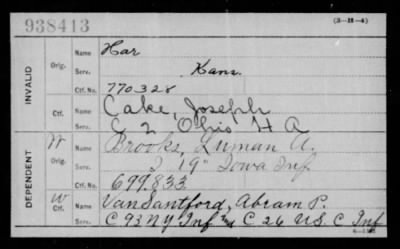 938413
(3-H-4)
INVALID
Orig.
Name Har
Serv. Kans.
Ctf. No. 770328
Ctf.
Name Cake, Joseph
Serv. C 2 Ohio H A
DEPENDENT
W Orig.
Name Brooks, Luman A.
Serv. I 19" Iowa Inf
Ctf. No. 699833
W Ctf.
Name VanSantford, Abram P.
Serv. C 93 NY Inf and C 26 U.S. C Inf